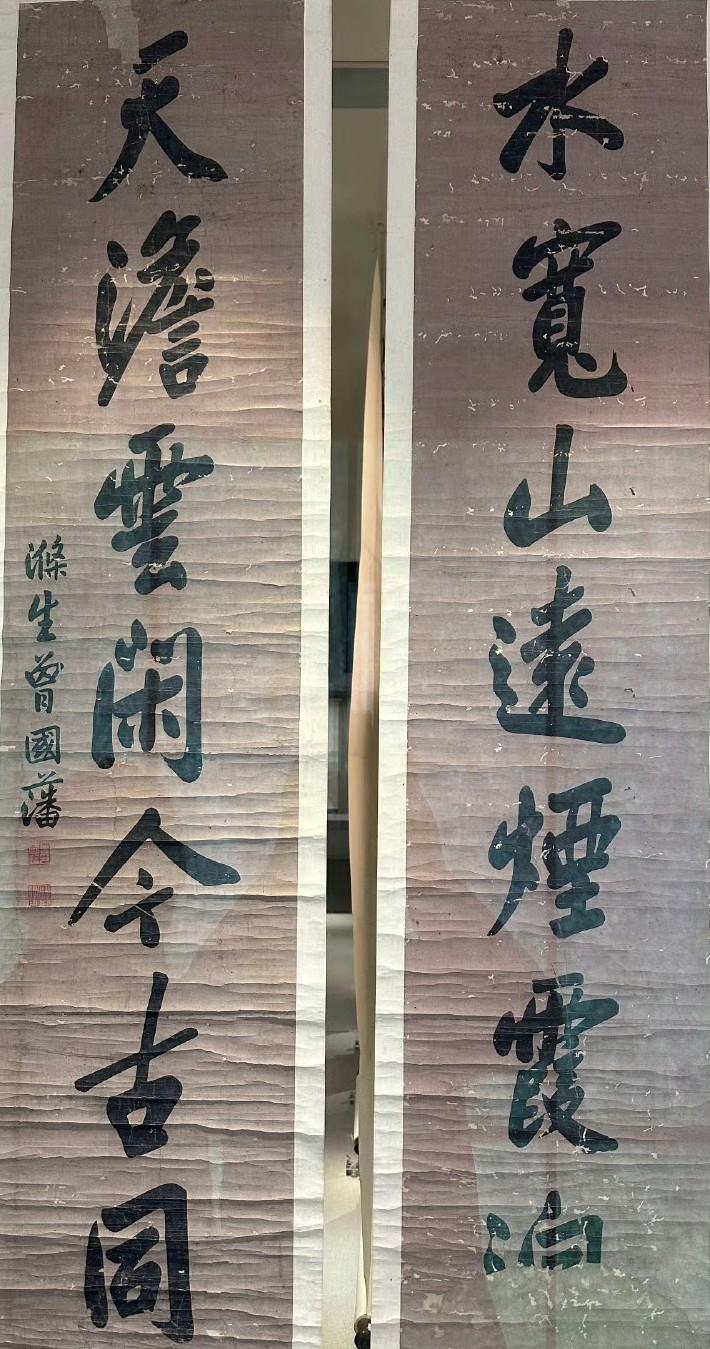 水寬山遠煙霞
天澹雲閑今古同
滌生曾國藩